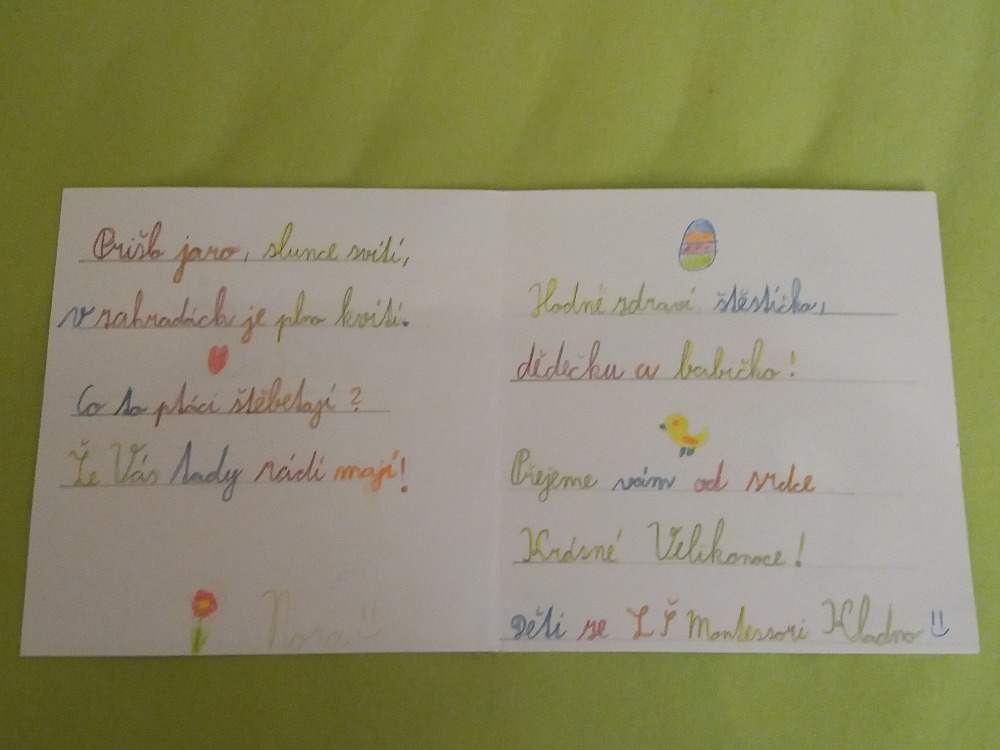 Přišlo jaro, slunce svítí,
v zahradách je plno kvítí.
Co to ptáci štěbetají?
Že Vás tady rádi mají!
Nora
Hodně zdraví, štěstíčka,
dědečku a babičko!
Přejeme vám od srdce
Krásné Velikonoce!
Děti ze ZŠ Montessori Kladno